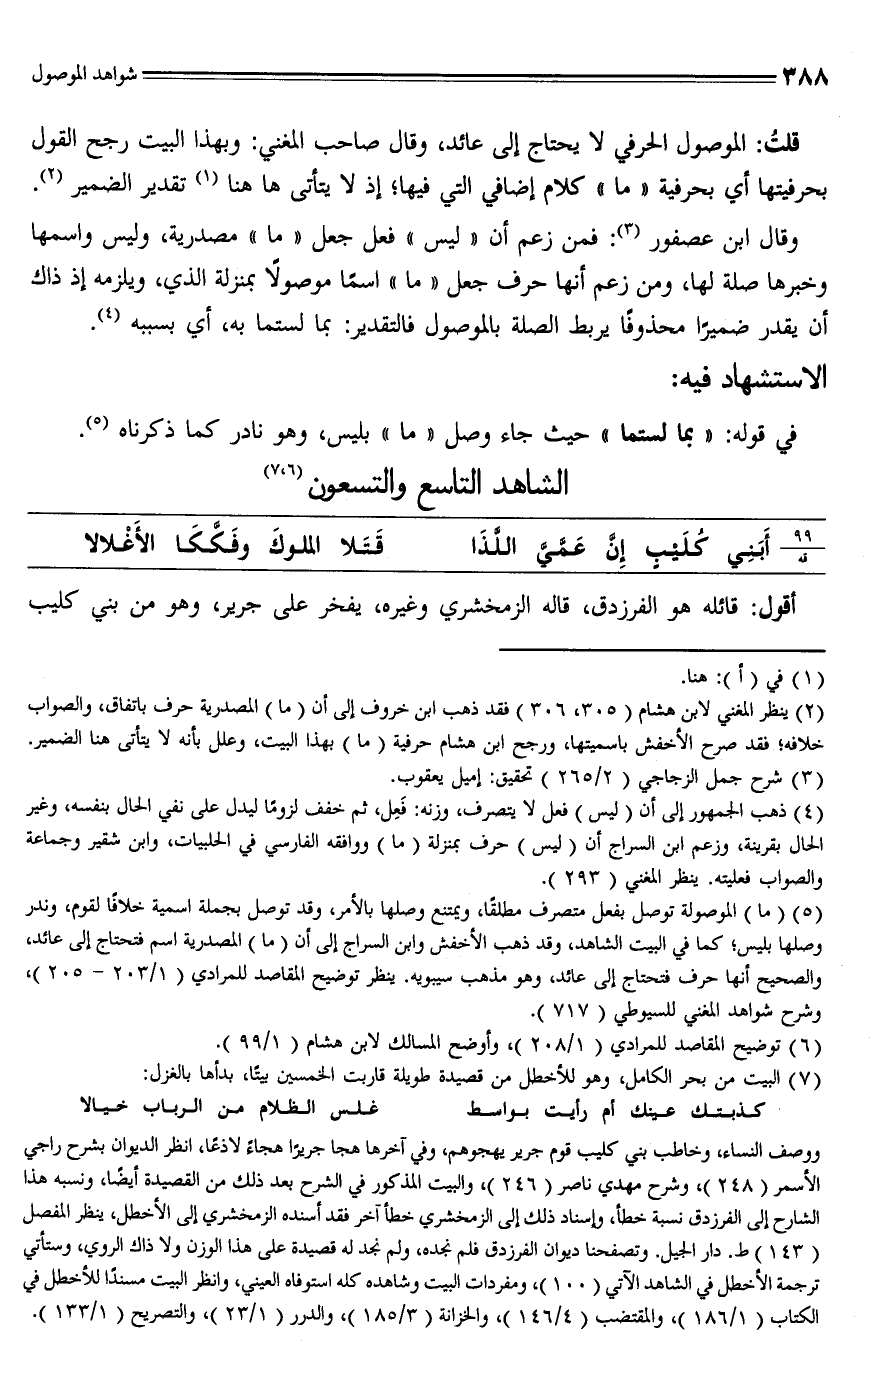 ٣٨٨ شواهد الموصول
قلتُ: الموصول الحرفي لا يحتاج إلى عائد، وقال صاحب المغني: وبهذا البيت رجح القول
بحرفيتها أي بحرفية « ما » كلام إضافي التي فيها؛ إذ لا يتأتى ها هنا (١) تقدير الضمير (٢).
وقال ابن عصفور (٣): فمن زعم أن « ليس » فعل جعل « ما » مصدرية، وليس واسمها
وخبرها صلة لها، ومن زعم أنها حرف جعل « ما » اسمًا موصولًا بمنزلة الذي، ويلزمه إذ ذاك
أن يقدر ضميرًا محذوفًا يربط الصلة بالموصول فالتقدير: بما لستما به، أي بسببه (٤).
الاستشهاد فيه:
في قوله: « بما لستما » حيث جاء وصل « ما » بليس، وهو نادر كما ذكرناه (٥).
الشاهد التاسع والتسعون (٧،٦)
٩٩/قه أَبَنِي كُلَيْبٍ إِنَّ عَمَّيَّ اللَّذَا قَتَلا الملوكَ وفَكَّكَا الأَغْلالا
أقول: قائله هو الفرزدق، قاله الزمخشري وغيره، يفخر على جرير، وهو من بني كليب
(١) في ( أ ): هنا.
(٢) ينظر المغني لابن هشام ( ٣٠٥، ٣٠٦ ) فقد ذهب ابن خروف إلى أن ( ما ) المصدرية حرف باتفاق، والصواب
خلافه؛ فقد صرح الأخفش باسميتها، ورجح ابن هشام حرفية ( ما ) بهذا البيت، وعلل بأنه لا يتأتى هنا الضمير.
(٣) شرح جمل الزجاجي ( ٢٦٥/٢ ) تحقيق: إميل يعقوب.
(٤) ذهب الجمهور إلى أن ( ليس ) فعل لا يتصرف، وزنه: فَعِل، ثم خفف لزومًا ليدل على نفي الحال بنفسه، وغير
الحال بقرينة، وزعم ابن السراج أن ( ليس ) حرف بمنزلة ( ما ) ووافقه الفارسي في الحلبيات، وابن شقير وجماعة
والصواب فعليته. ينظر المغني ( ٢٩٣ ).
(٥) ( ما ) الموصولة توصل بفعل متصرف مطلقًا، ويمتنع وصلها بالأمر، وقد توصل بجملة اسمية خلافًا لقوم، وندر
وصلها بليس؛ كما في البيت الشاهد، وقد ذهب الأخفش وابن السراج إلى أن ( ما ) المصدرية اسم فتحتاج إلى عائد،
والصحيح أنها حرف فتحتاج إلى عائد، وهو مذهب سيبويه. ينظر توضيح المقاصد للمرادي ( ٢٠٣/١ – ٢٠٥ )،
وشرح شواهد المغني للسيوطي ( ٧١٧ ).
(٦) توضيح المقاصد للمرادي ( ٢٠٨/١ )، وأوضح المسالك لابن هشام ( ٩٩/١ ).
(٧) البيت من بحر الكامل، وهو للأخطل من قصيدة طويلة قاربت الخمسين بيتًا، بدأها بالغزل:
كـذبـتـك عـينـك أم رأيـت بـواسـط غـلـس الـظـلام مـن الـربـاب خـيـالا
ووصف النساء، وخاطب بني كليب قوم جرير يهجوهم، وفي آخرها هجا جريرًا هجاءً لاذعًا، انظر الديوان بشرح راجي
الأسمر ( ٢٤٨ )، وشرح مهدي ناصر ( ٢٤٦ )، والبيت المذكور في الشرح بعد ذلك من القصيدة أيضًا، ونسبه هذا
الشارح إلى الفرزدق نسبة خطأ، وإسناد ذلك إلى الزمخشري خطأ آخر فقد أسنده الزمخشري إلى الأخطل، ينظر المفصل
( ١٤٣ ) ط. دار الجيل. وتصفحنا ديوان الفرزدق فلم نجده، ولم نجد له قصيدة على هذا الوزن ولا ذاك الروي، وستأتي
ترجمة الأخطل في الشاهد الآتي ( ١٠٠ )، ومفردات البيت وشاهده كله استوفاه العيني، وانظر البيت مسندًا للأخطل في
الكتاب ( ١٨٦/١ )، والمقتضب ( ١٤٦/٤ )، والخزانة ( ١٨٥/٣ )، والدرر ( ٢٣/١ )، والتصريح ( ١٣٣/١ ).